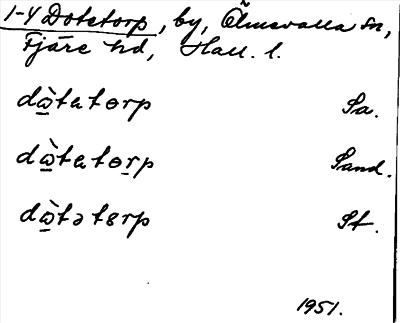 1-4 Dotetorp, by, Ölmevalla sn,
Fjäre hd, Hall. l.
dὼ̲tatɵrp Sa.
dὼ̲tatɵr̲p Sand.
dὼ̲tətɵrp St.
1951.